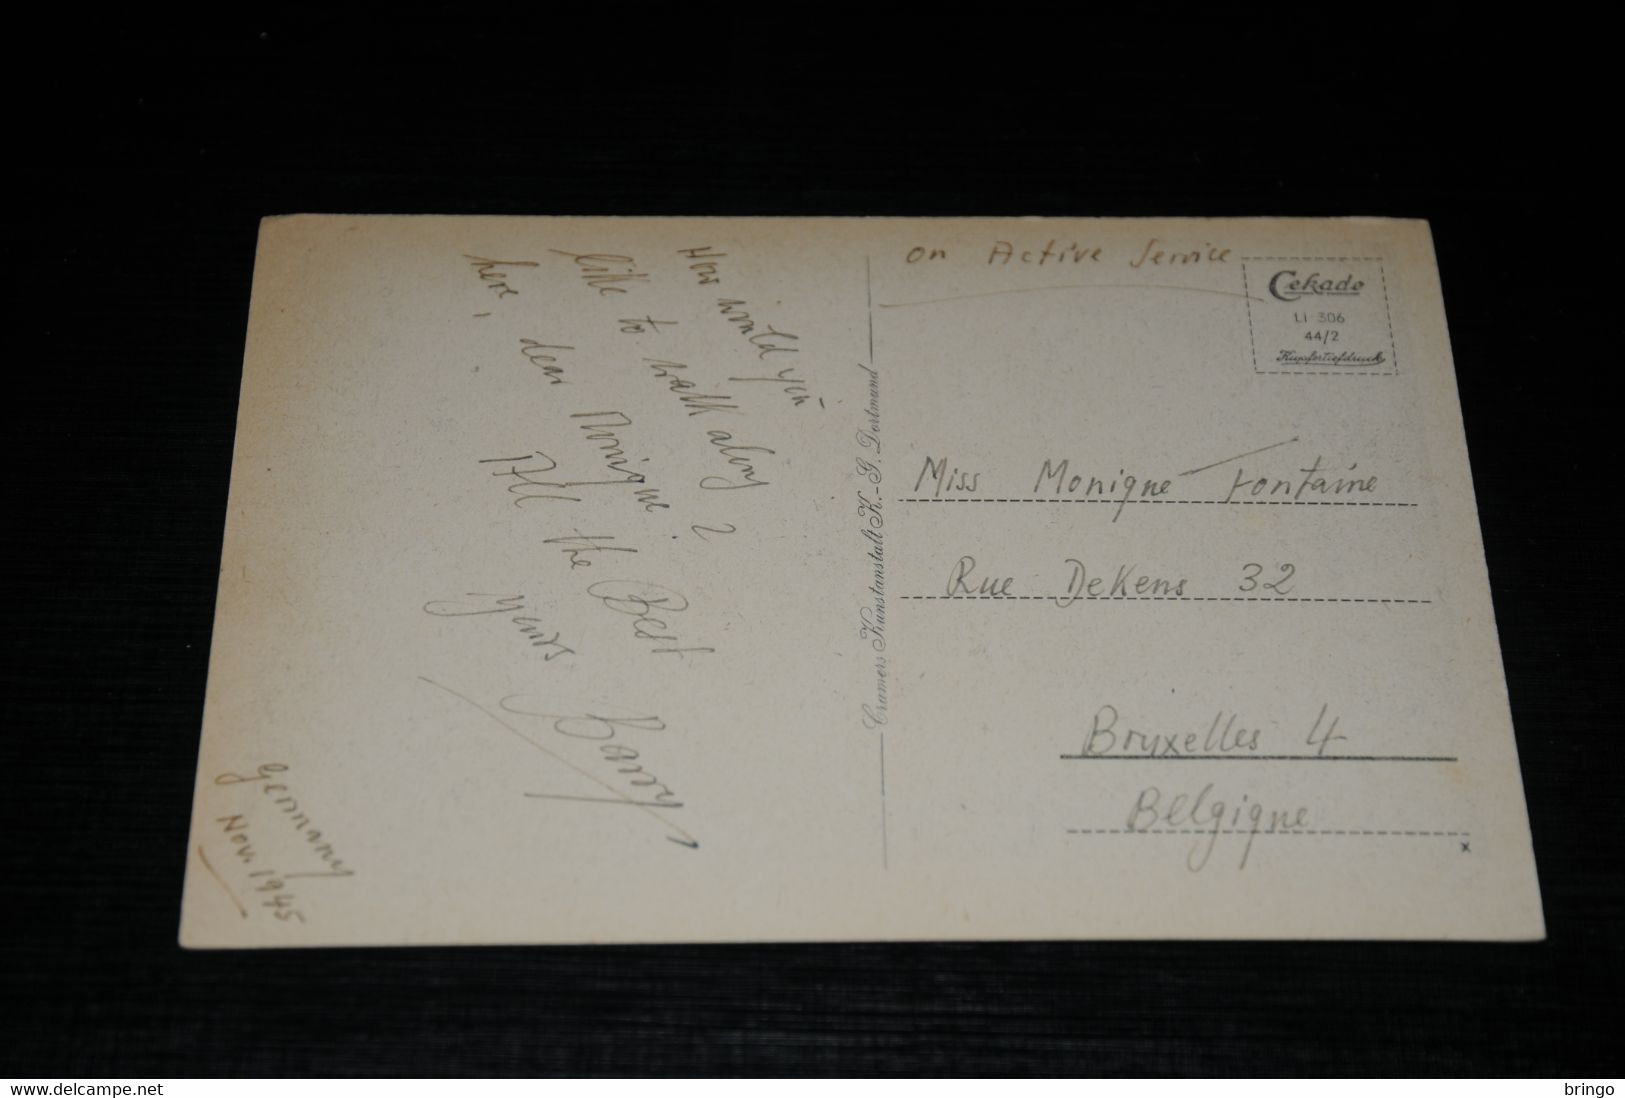 How would you
like to walk along
here, dear Monique ?
All the Best
yours
Barry
Germany
Nov. 1945
Cramers Kunstanstalt K.-G. Dortmund
on Active Service
Cekade
LI 306
44/2
Kupfertiefdruck
Miss Monique Fontaine
Rue DeKens 32
Bruxelles 4
Belgique
x
www.delcampe.net
bringo